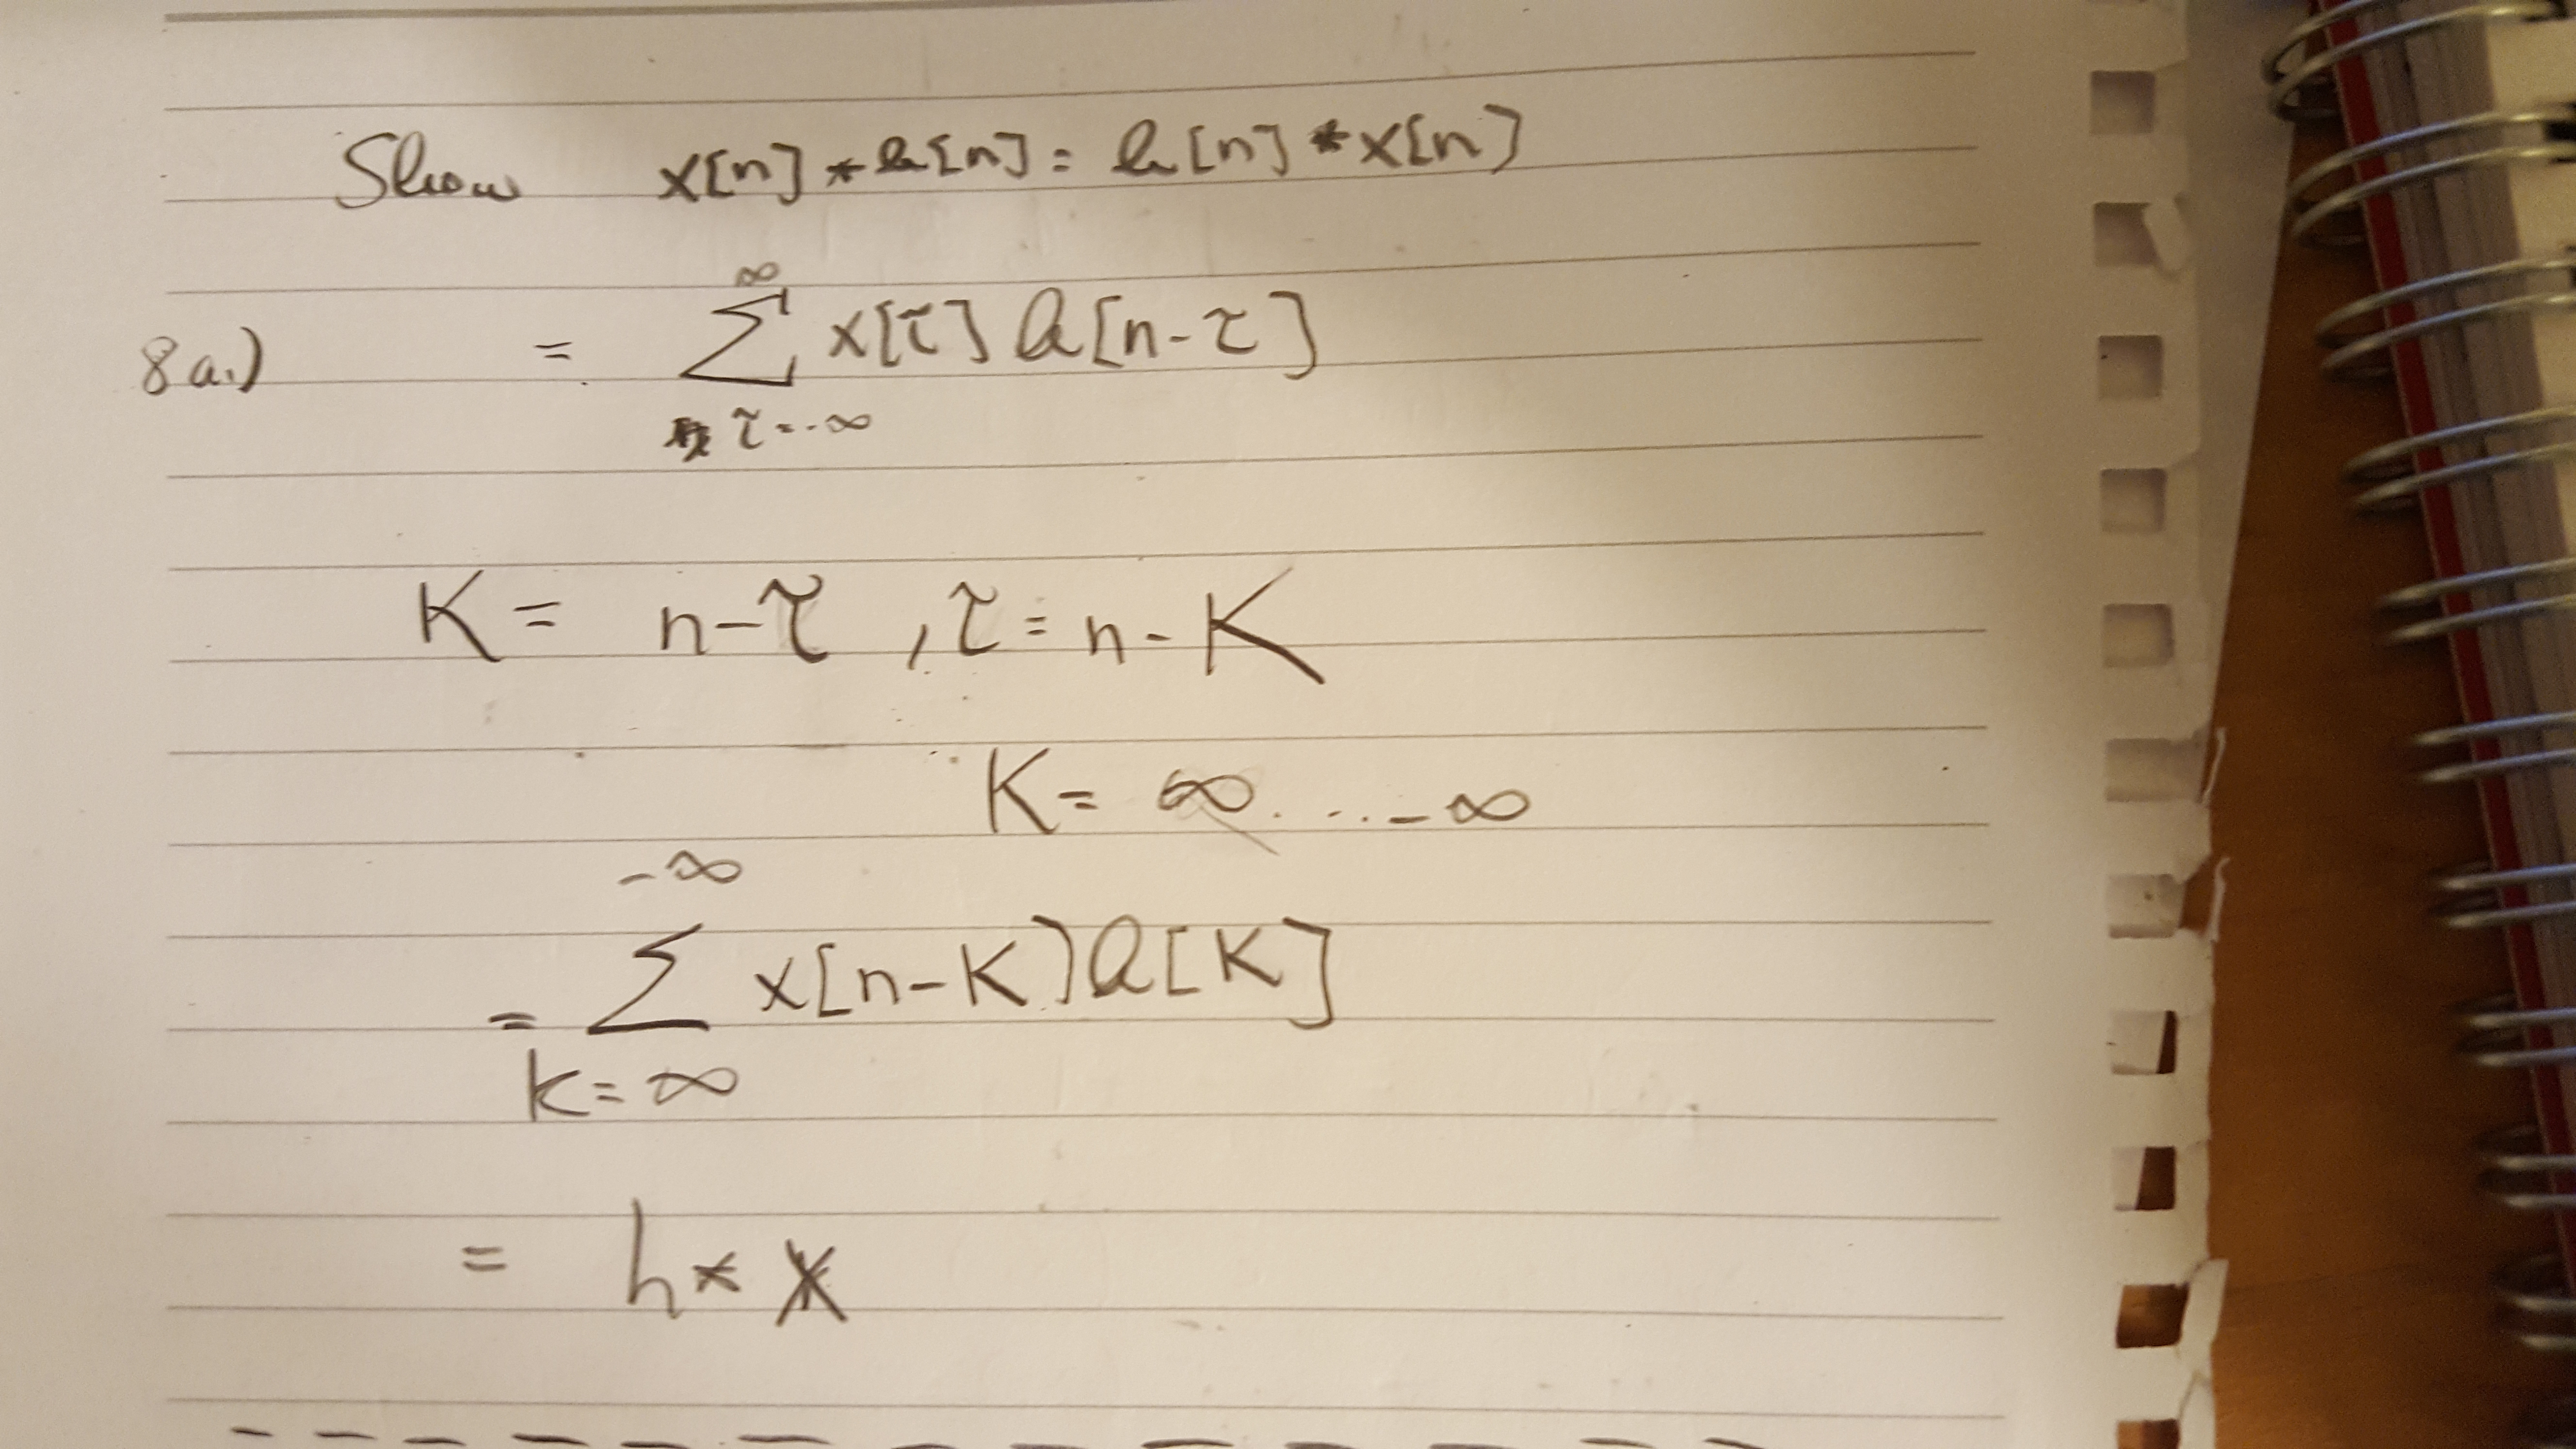 Show x[n] * h[n] = h[n] * x[n]
8a.) = ∞ ∑ τ=-∞ x[τ] h[n-τ]
K = n-τ , τ = n-K
K = ∞ ... -∞
= -∞ ∑ k=∞ x[n-K) h[K]
= h * x